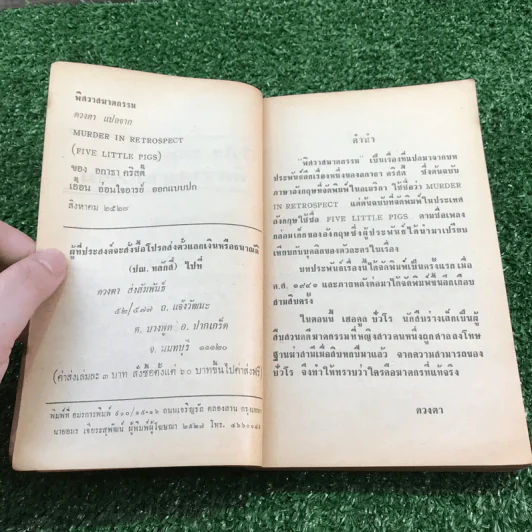 พิศวาสฆาตกรรม
ดวงตา แปลจาก
MURDER IN RETROSPECT
(FIVE LITTLE PIGS)
ของ อกาธา คริสตี้
เอื้อน อ่อนใจอารย์ ออกแบบปก
สิงหาคม ๒๕๒๗
ผู้ที่ประสงค์จะสั่งซื้อโปรดส่งตั๋วแลกเงินหรือธนาณัติ
(ปณ. หลักสี่) ไปที่
ดวงตา ส่งสัมพันธ์
๕๒/๕๗๗ ถ. แจ้งวัฒนะ
ต. บางพูด อ. ปากเกร็ด
จ. นนทบุรี ๑๑๑๒๐
(ค่าส่งเล่มละ ๓ บาท สั่งซื้อตั้งแต่ ๖๐ บาทขึ้นไปค่าส่งฟรี)
พิมพ์ที่ อมรการพิมพ์ ๕๐๐/๑๕-๑๖ ถนนเจริญรัถ คลองสาน
นายอมร เจียระสุพัฒน์ ผู้พิมพ์ผู้โฆษณา ๒๕๒๗ โทร.
คำนำ
"พิศวาสฆาตกรรม" เป็นเรื่องที่แปลมาจากบท
ประพันธ์อีกเรื่องหนึ่งของอกาธา คริสตี้ ซึ่งต้นฉบับ
ภาษาอังกฤษที่จัดพิมพ์ในอเมริกา ใช้ชื่อว่า MURDER
IN RETROSPECT แต่ต้นฉบับที่จัดพิมพ์ในประเทศ
อังกฤษใช้ชื่อ FIVE LITTLE PIGS ตามชื่อเพลง
กล่อมเด็กของอังกฤษซึ่งผู้ประพันธ์ได้นำมาเปรียบ
เทียบกับบุคลิกของตัวละครในเรื่อง
บทประพันธ์เรื่องนี้ได้จัดพิมพ์เป็นครั้งแรก เมื่อ
ค.ศ. ๑๙๔๑ และภายหลังต่อมาได้จัดพิมพ์ขึ้นอีกเกือบ
สามสิบครั้ง
ในตอนนี้ เฮอคูล ปัวโร นักสืบร่างเล็กเป็นผู้
สืบสวนคดีฆาตกรรมที่หญิงสาวคนหนึ่งถูกศาลลงโทษ
ฐานฆ่าสามีเมื่อสิบหกปีมาแล้ว จากความสามารถของ
ปัวโร จึงทำให้ทราบว่าใครคือฆาตกรที่แท้จริง
ดวงตา